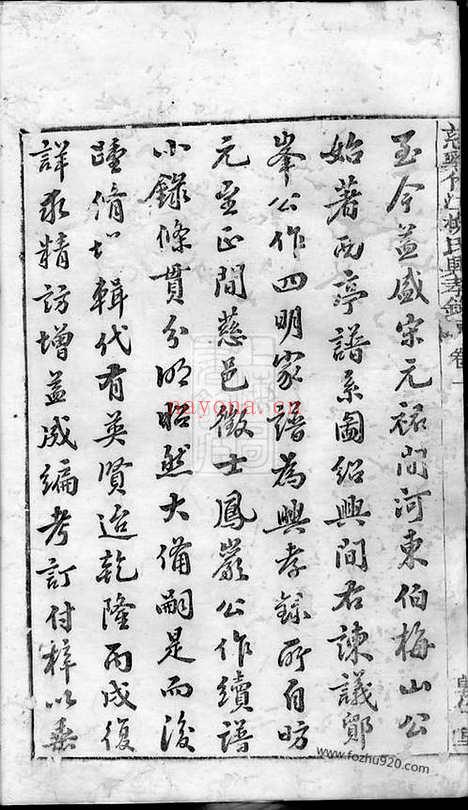 至今益盛宋元祐間河東伯梅山公
始著西亭譜系圖紹興間右諫議鄮
峯公作四明家譜為興孝錄所自昉
元至正間慈邑徵士鳳巖公作續譜
小錄條貫分明昭然大備嗣是而後
踵脩
輯代有英賢迨乾隆丙戌復
詳求精訪增益成編考訂付梓以垂
氏興孝錄
卷一
nayona.cn
www.fozhu920.com